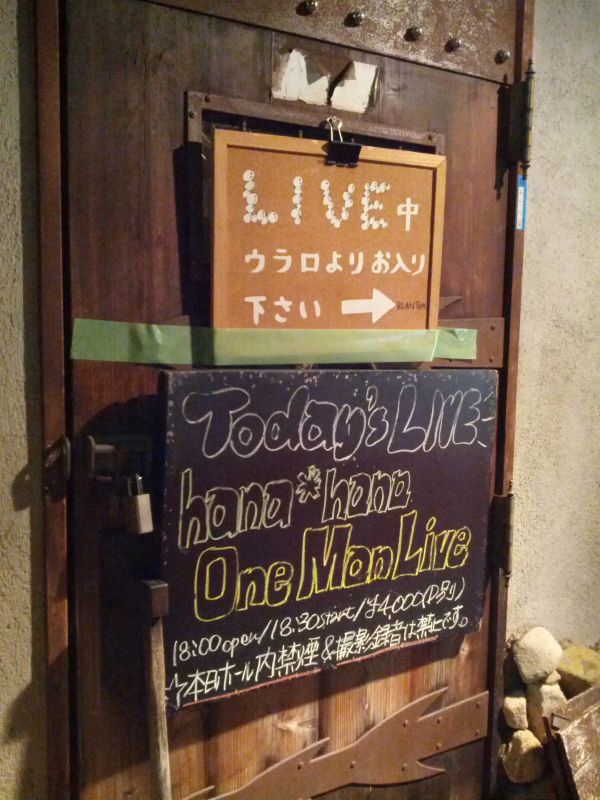 LIVE中
ウラロよりお入り
下さい → BLANTON
Today's LIVE
hana*hana
One Man Live
18:00open/18:30start/¥4,000(D別)
☆本日ホール内禁煙&撮影録音は禁止です。